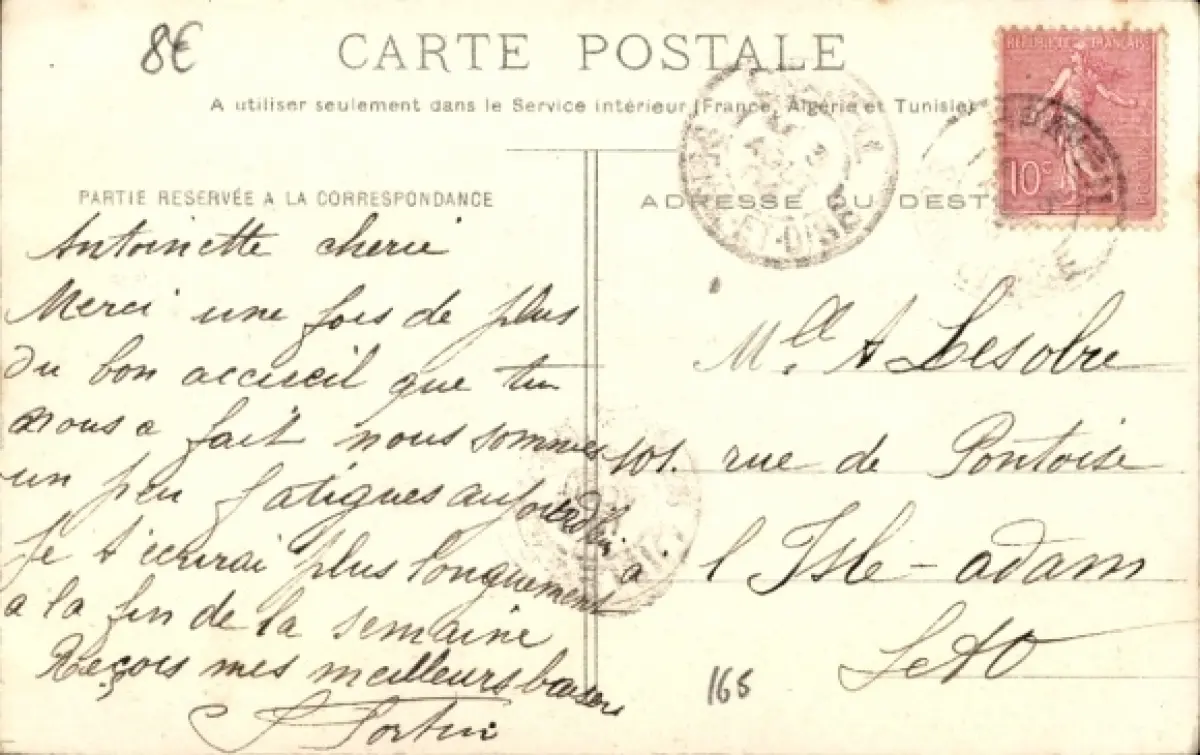 8€
CARTE POSTALE
A utiliser seulement dans le Service intérieur (France, Algérie et Tunisie)
REPUBLIQUE FRANÇAISE
10c
PARTIE RESERVÉE A LA CORRESPONDANCE
ADRESSE DU DEST
SEINE-ET-OISE
Antoinette cherie
Merci une fois de plus
du bon accueil que tu
nous a fait nous sommes
un peu fatigues aujourd'hui
Je t'ecrirai plus longuement
a la fin de la semaine
Reçois mes meilleurs baisers
Mlle A Lesobre
101. rue de Pontoise
à l Isle-adam
S et O
168